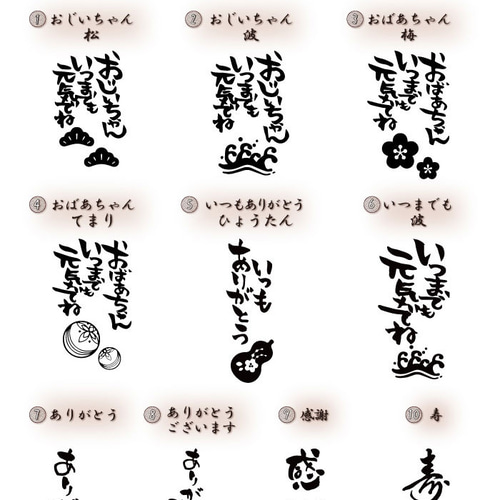 ① おじいちゃん
松
おじいちゃん
いつまでも
元気でね
② おじいちゃん
波
おじいちゃん
いつまでも
元気でね
③ おばあちゃん
梅
おばあちゃん
いつまでも
元気でね
④ おばあちゃん
てまり
おばあちゃん
いつまでも
元気でね
⑤ いつもありがとう
ひょうたん
いつも
ありがとう
⑥ いつまでも
波
いつまでも
元気でね
⑦ ありがとう
あり
⑧ ありがとう
ございます
ありが
⑨ 感謝
感
⑩ 寿
寿